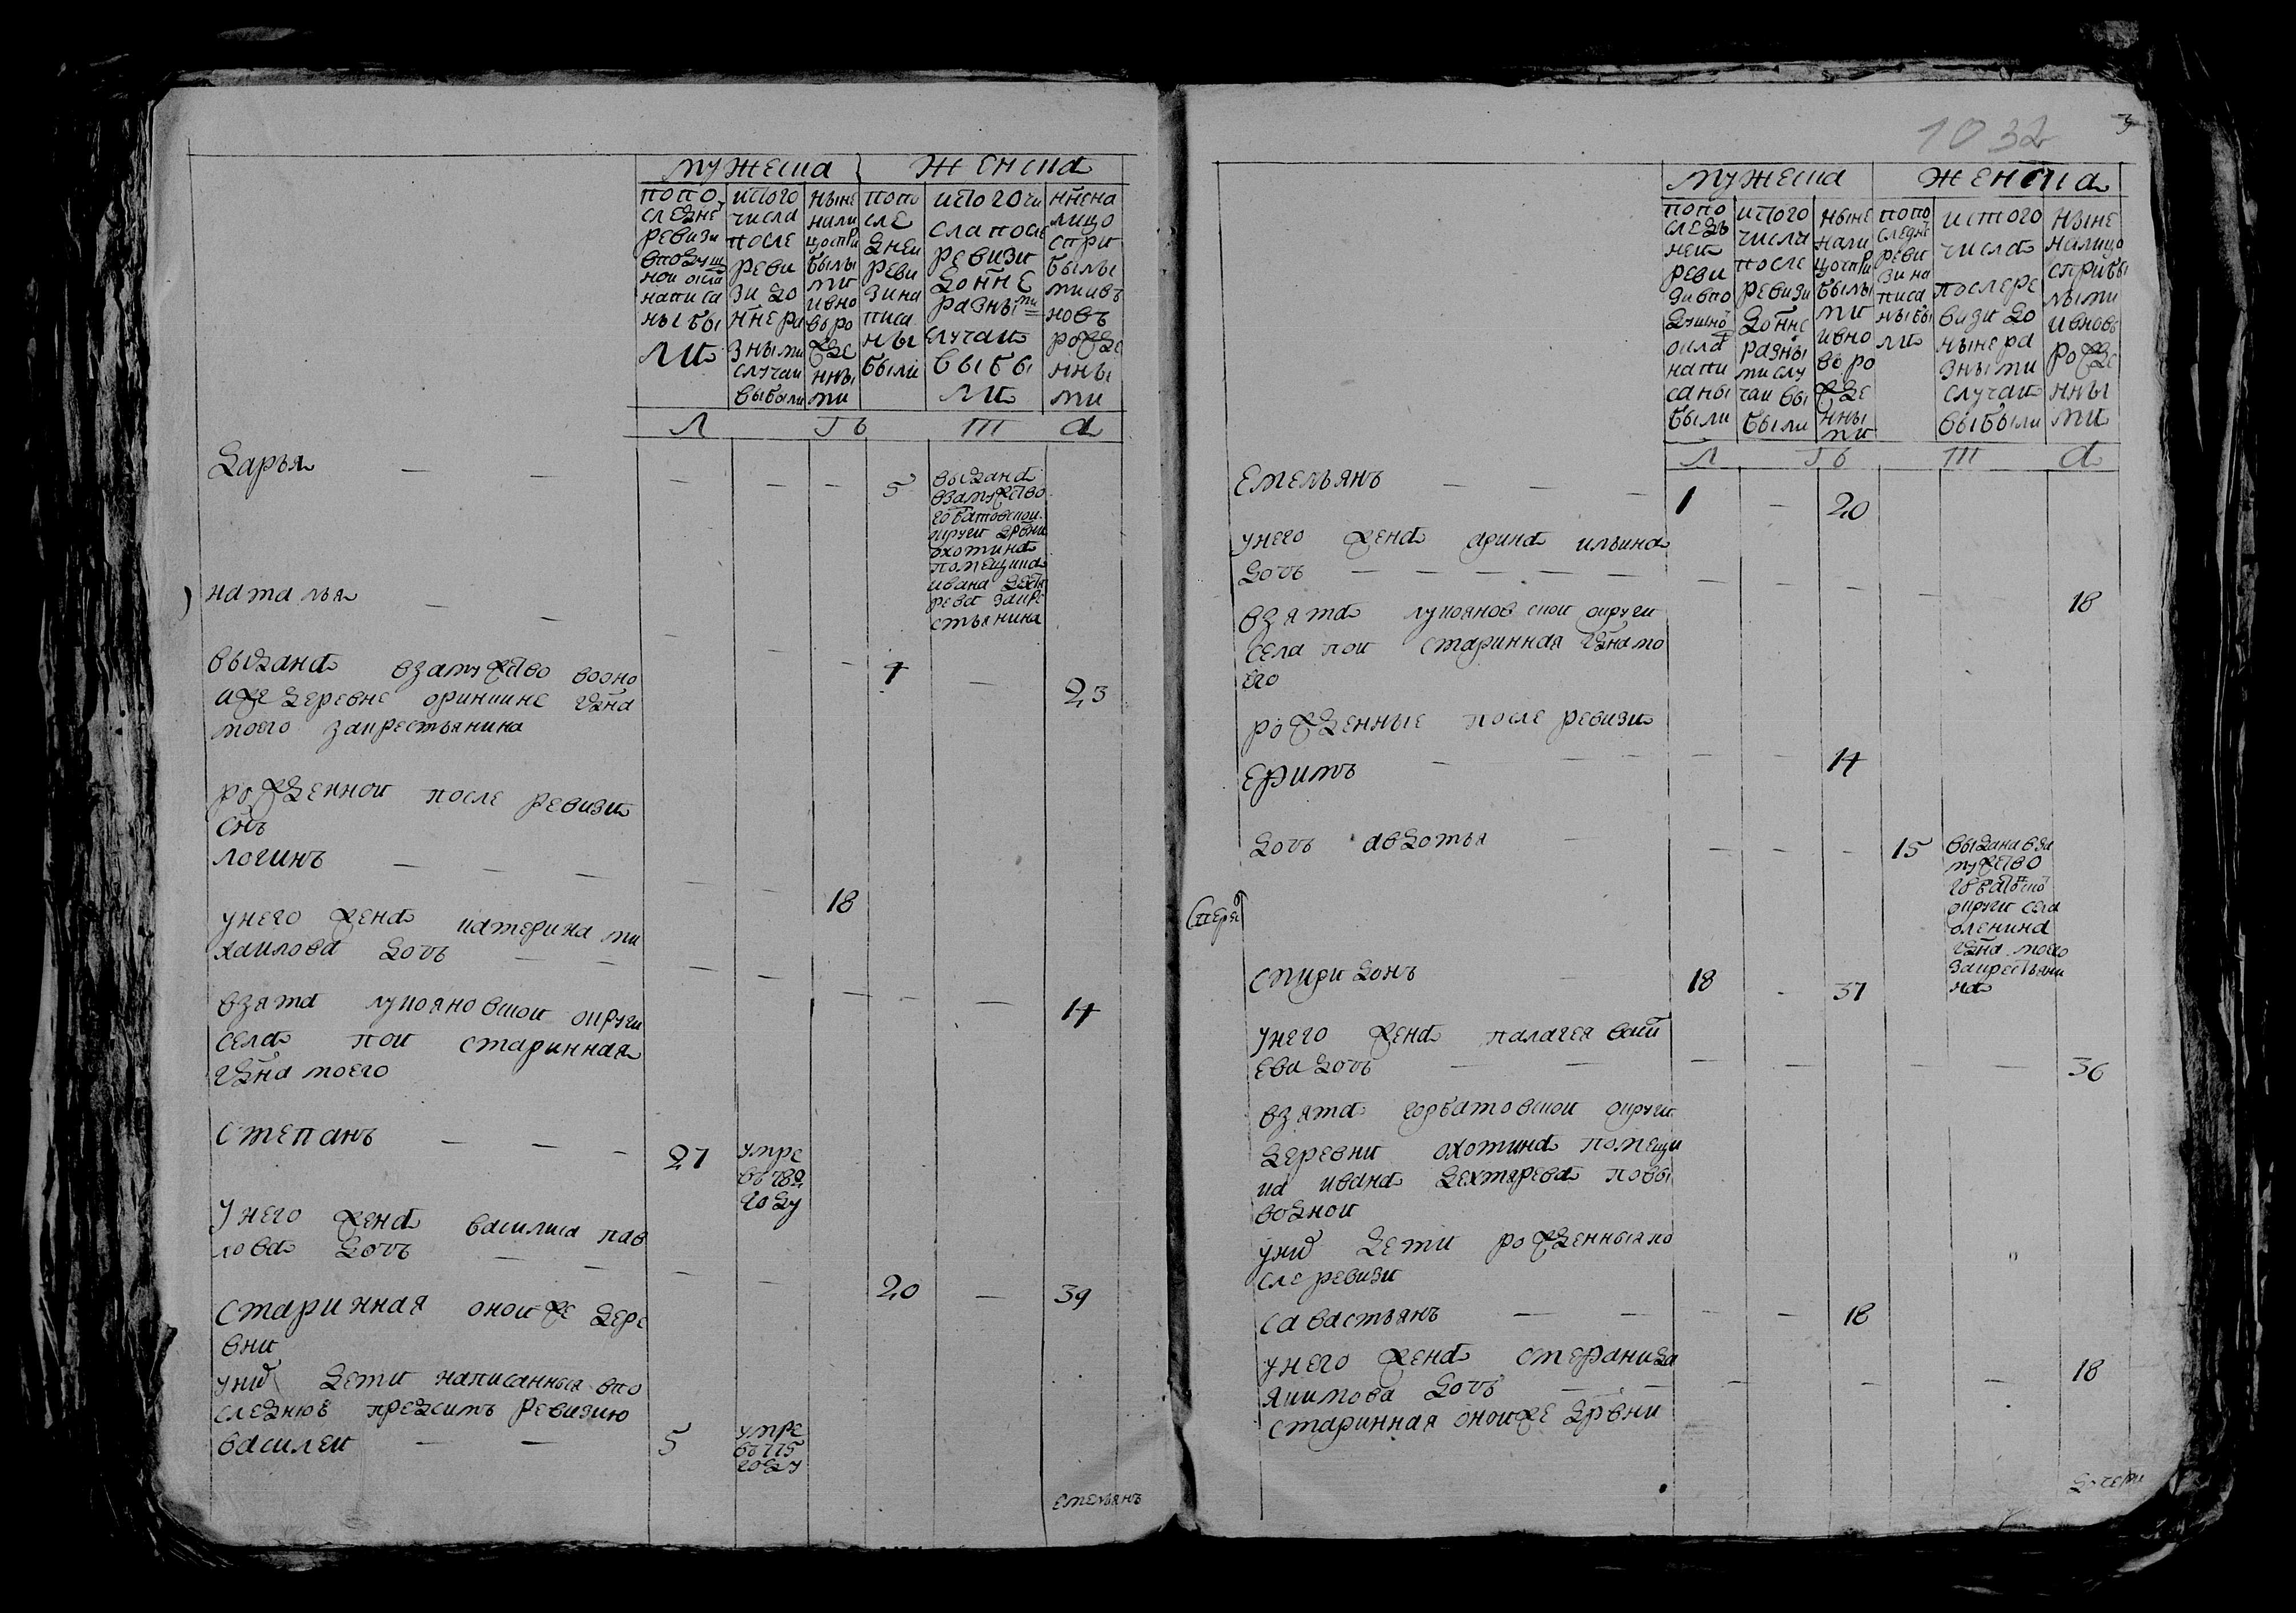 мужеска женска
попо
следне
ревизи
вподуш
нои окла
написа
ны бы
ли
истого
числа
после
реви
зи до
нне ра
зными
случаи
выбыли
ныне
нали
цо спри
былы
ми
ивно
вь ро
жде
нны
ми
попо
сле
днеи
реви
зи на
писа
ны
были
истого чи
сла после
ревизи
до нне
разными
случаи
выбы
ли
нне на
лицо
спри
былы
ми ивъ
новъ
рожде
нны
ми
Л ѣ т а
Дарья 5 выдана
взамужство
горбатовской
округи дрвни
охотина
помещика
ивана дехтя
рева закре
стьянина
наталья
выдана взамужство воoно
иже деревне оринкине гдна 4 23
моего закрестьянина
рожденнои после ревизи
снъ
логинъ 18
унего жена катерина ми
хаилова дочь
взята лукояновскои округи 14
села пои старинная
гдна моего
степанъ 27 умре
въ 780
году
Унего жена василиса пав
лова дочь
старинная оноиже дере 20 39
вни
уних дети написанныя впо
следнюю предсимъ ревизию
василеи 5 умре
въ 775
году
емельянъ
1032
3
мужеска женска
попо
следъ
неи
реви
зи впо
душно
окла
напи
саны
были
истого
числа
после
ревизи
до нне
разны
ми слу
чаи вы
были
ныне
нали
цо спри
былы
ми
ивно
во ро
жде
нны
ми
попо
следне
реви
зи на
писа
ны бы
ли
истого
числа
после ре
визи до
ныне ра
зными
случаи
выбыли
ныне
налицо
сприбы
лыми
ивновь
рожде
нны
ми
Л ѣ т а
Емельянъ 1 20
унего жена арина ильина
дочь 18
взята лукояновскои округи
села пои старинная гдна мо
его
рожденные после ревизи
ефимъ 14
дочь авдотья 15 выдана вза
мужство
горбатовско
округи села
оленина
гдна моего
закрестьяни
на
спиридонъ 18 37
унего жена палагея васи
ева дочь 36
взята горбатовскои округи
деревни охотина помещи
ка ивана дехтярева повы
воднои
уних дети рожденныя по
сле ревизи
савастьянъ 18
унего жена степанида 18
якимова дочь
старинная оноиже дрвни
дочери